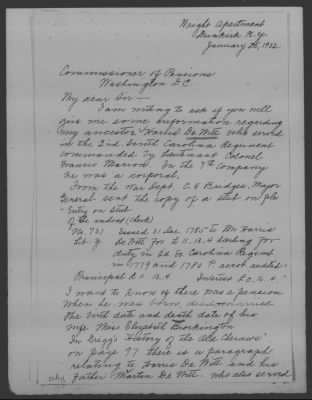 Wright Apartment
Dunkirk N.Y.
January 25, 1932.
Commissioner of Pensions
Washington D C
My dear Sir—
I am writing to ask if you will
give me some information regarding
my ancestor Harris De Witt who served
in the 2nd South Carolina Regiment
commanded by Lieutenant Colonel
Francis Marion. In the 7th Company
he was a corporal.
From the War Dept. C H Bridges, Major
General sent the copy of a stub on file
"Entry on Stub
Of the indent (check)
No. 731 Issued 31 Dec. 1785 to Mr Harris
Lib. Y De Witt for £ 11 .. 13 .. 4 Sterling for
duty in 2d So. Carolina Regimt
in 1779 and 1780 P. accot. audited
Principal £ 11 .. 13 .. 4 Interest
I want to know if there was a pension
when he was born, died married
the birth date and death date of his
wife Miss Elizabeth Brockington
In Gregg's History of the Old Cheraws
on page 97 there is a paragraph
relating to Harris De Witt and his
Father Martin De Witt who also served